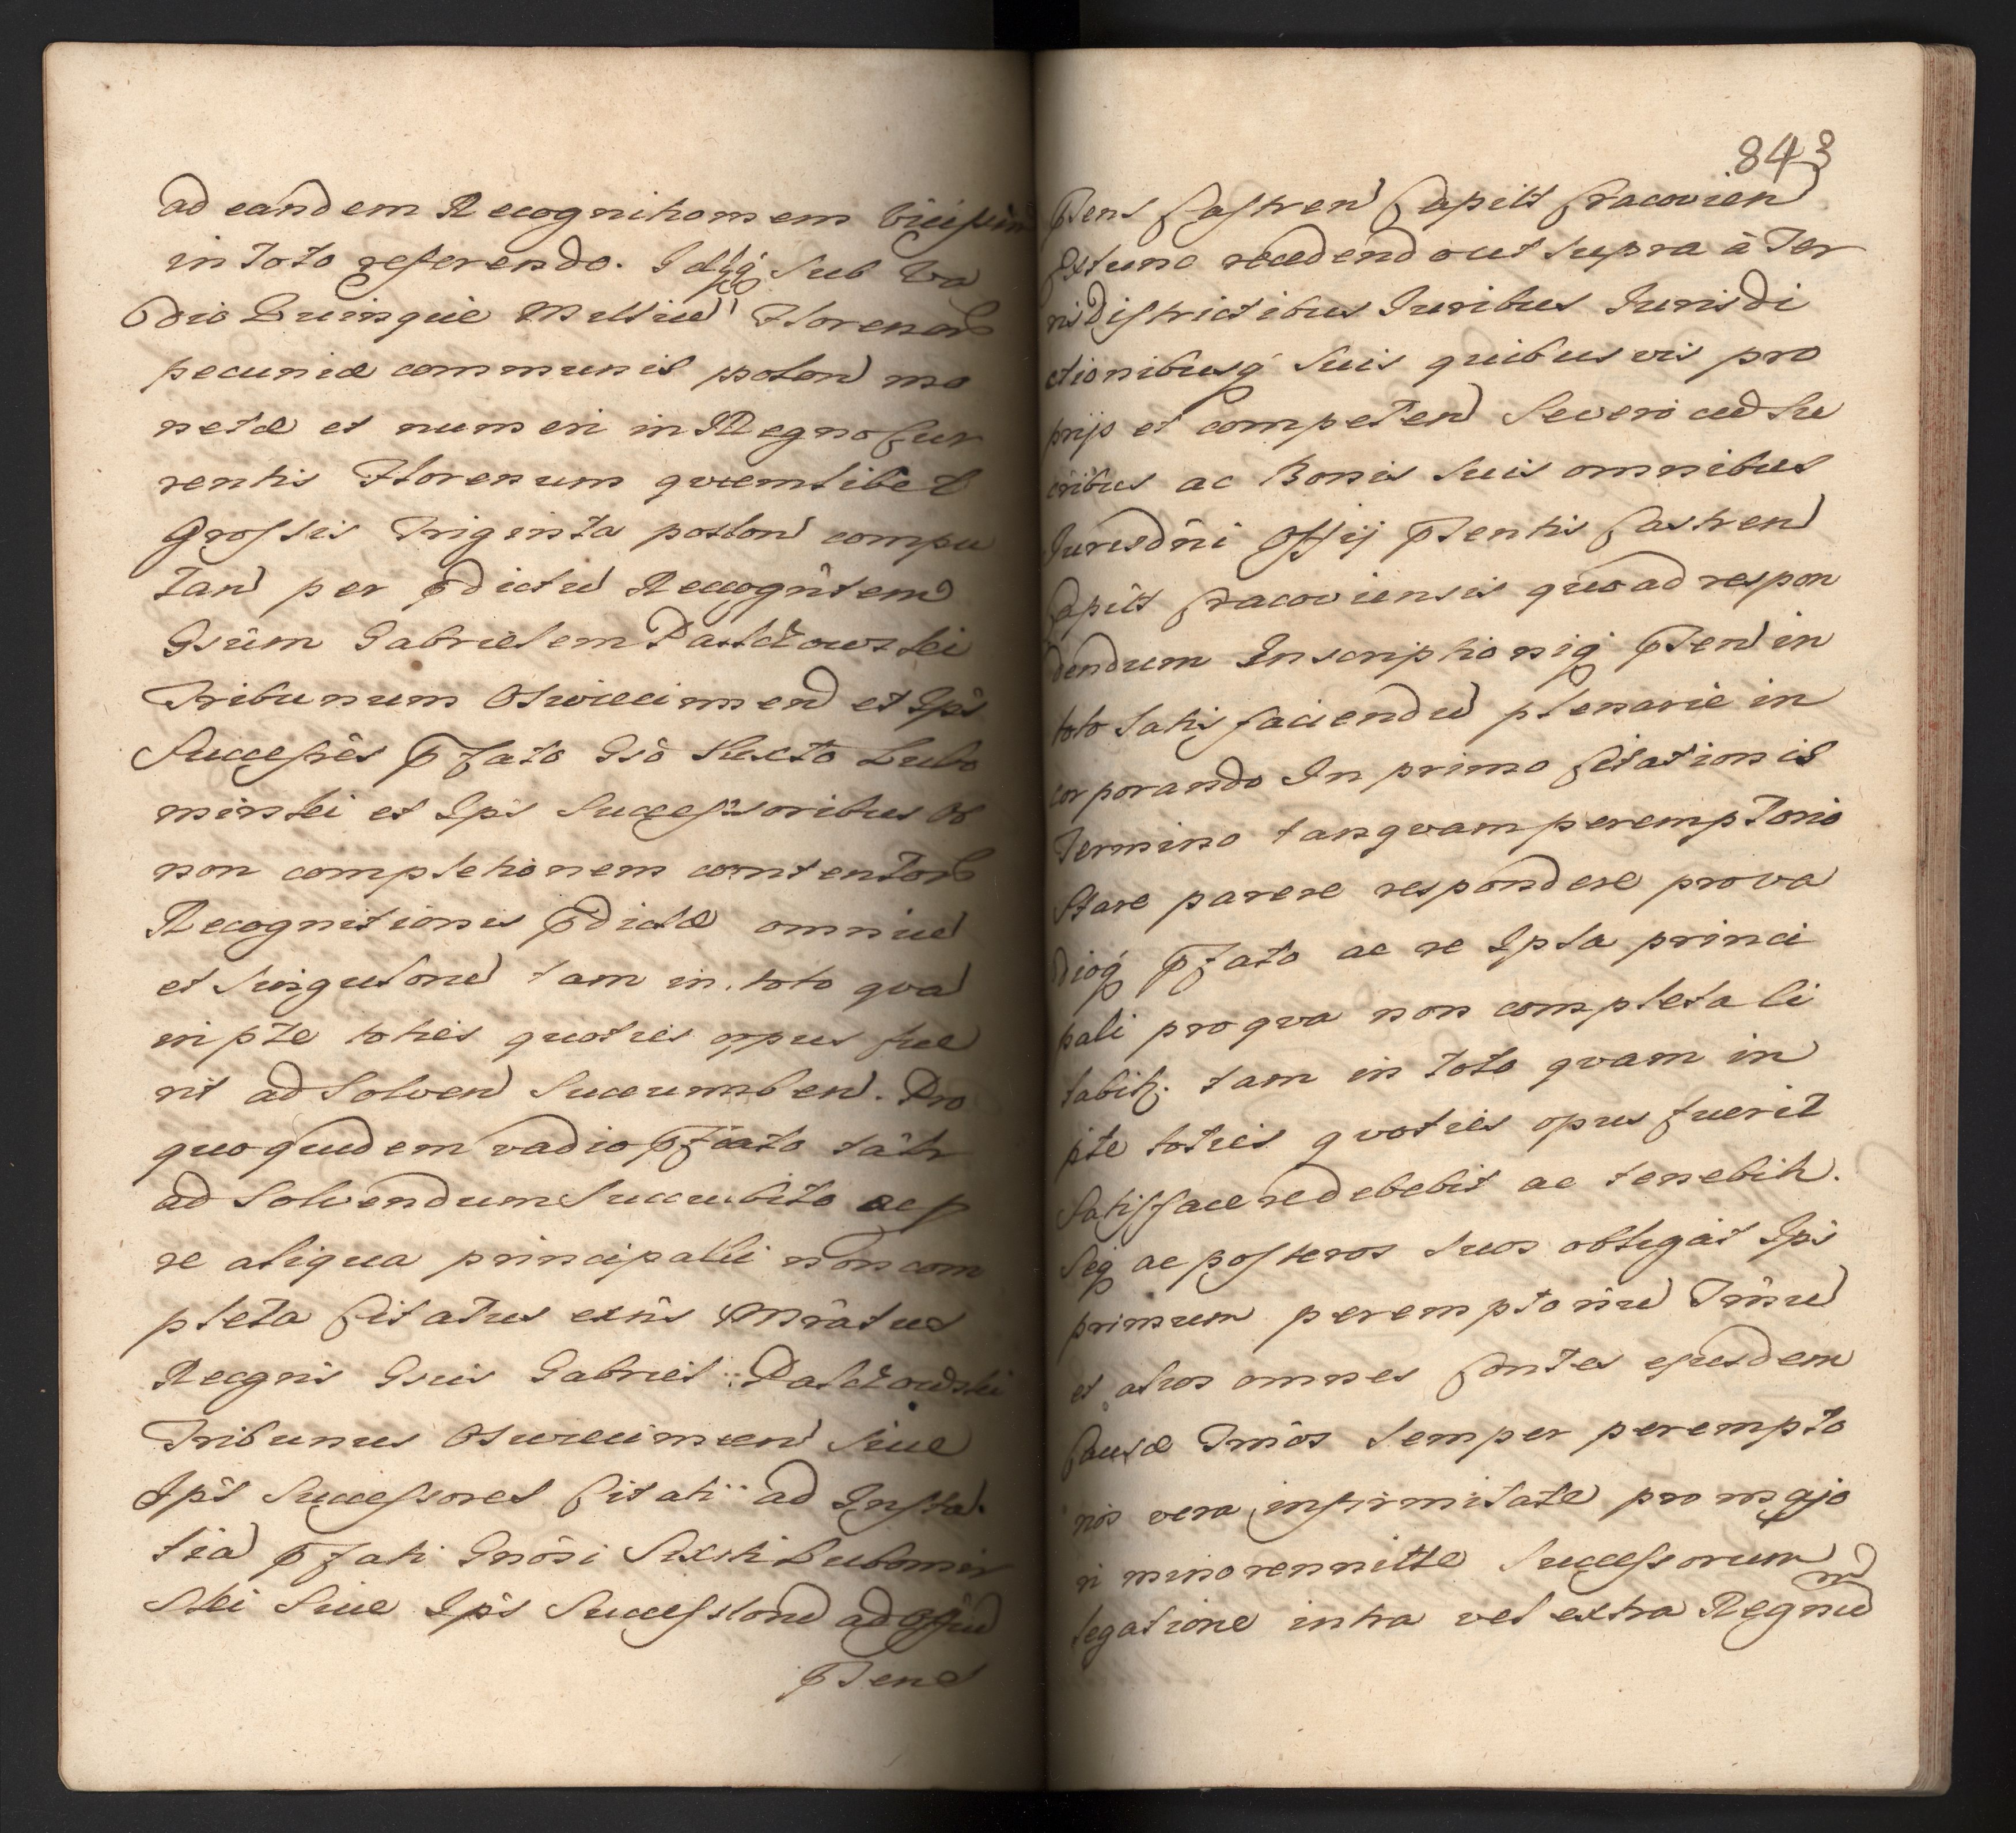 ad eandem Recognitionem
in toto referendo. Idqꝫ Sub Va
dio Quinque Milliu Florenorꝫ
pecuniæ communis polon mo
netæ et numeri in Regno Cur
rentis Florenum quemlibet
Grossis Triginta polon compu
tan per pdictu Recognitem
Gsum Gabrielem Palczowski
Tribunum Oswiecimen et Ips
Successres pfato Gso Sixto Lubo
mirski et Ips Successoribus Ob
non completionem contentorꝫ
Recognitionis pdictæ omniu
et Singuloru tam in toto qva
in pte toties quoties opus fue
rit ad Solven Succumben. Pro
quo quidem vadio pfato
ad Solvendum Succubito ac p
re aliqua principali non com
pleta Citatus
Recgns Gsus Gabriel Palczowski
Tribunus Oswiecimien Siue
Ips Successores Citati ad Insta
tia pfati Gnosi Sixti Lubomir
ski Siue Ips Successoru ad Offiu
pTens
843
pTens Castren Capitt Cracovien
Extunc recedendo ut Supra à Ter
ris Districtibus Juribus Jurisdi
ctionibusqꝫ Suis quibusvis pro
prijs et competen Severo cu Su
cribus ac Bonis Suis omnibus
Jurisdni Offij pTentis Castren
Capitt Cracoviensis quo ad respon
dendum Inscriptioniqꝫ pTen in
toto Satisfaciendu plenarie in
corporando In primo Citationis
Termino tanqvam peremptorio
Stare parere respondere pro va
dioqꝫ pfato ac re Ipsa princi
pali pro qva non completa Ci
tabitꝫ. tam in toto qvam in
pte toties qvoties opus fuerit
Satisfacere debebit ac tenebitr.
Seqꝫ ac posteros Suos obligat Ips
primum peremptoriu Tmnu
et alios omnes Contes ejusdem
Causæ Tmnos Semper perempto
rios vera infirmitate pro majo
ri minorennitte Successorum
legatione intra vel extra Regnu